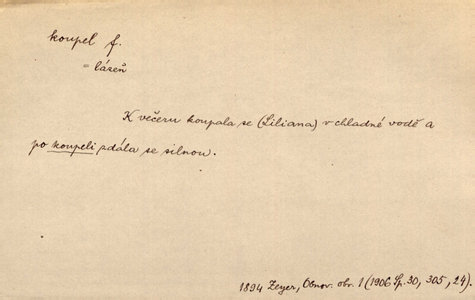 koupel f.
= lázeň
K večeru koupala se (Liliana) v chladné vodě a
po koupeli zdála se silnou.
1894 Zeyer, Obnov. obr. 1 (1906 Sp. 30, 305, 24).